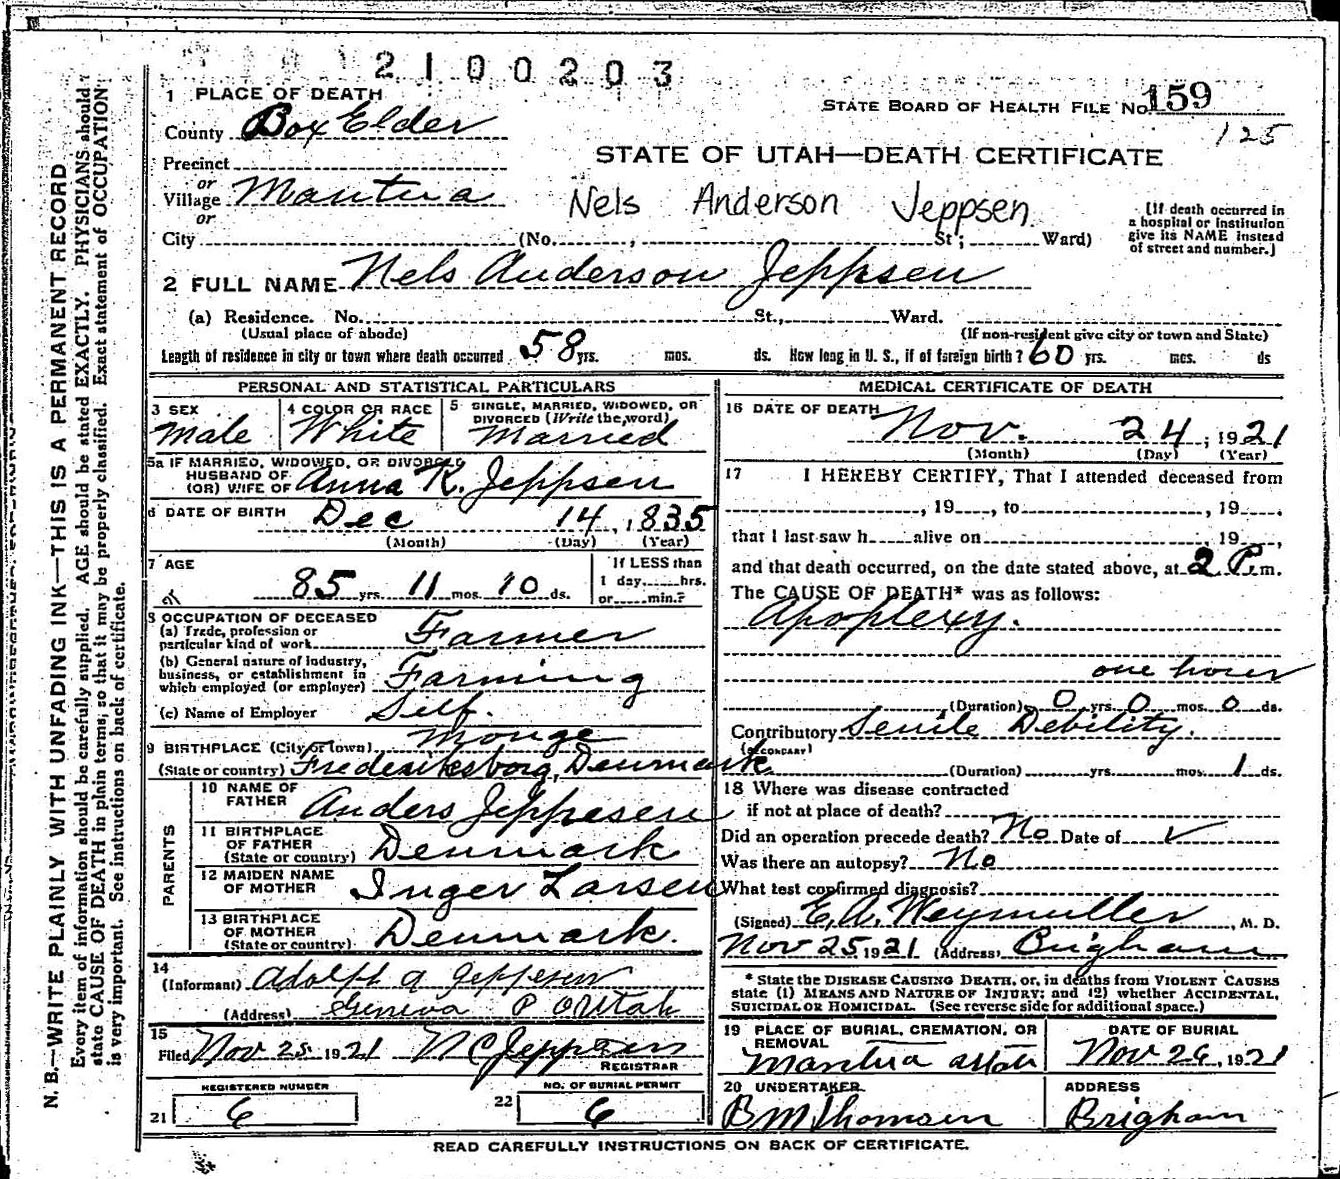 2100203
1 PLACE OF DEATH
STATE BOARD OF HEALTH FILE No. 159
125
County Box Elder
STATE OF UTAH—DEATH CERTIFICATE
Precinct
or
Village Mantua
or
Nels Anderson Jeppsen
[If death occurred in
a hospital or institution
give its NAME instead
of street and number.]
City (No. , St; Ward)
2 FULL NAME Nels Anderson Jeppsen
(a) Residence. No. St., Ward.
(Usual place of abode) (If non-resident give city or town and State)
Length of residence in city or town where death occurred 58 yrs. mos. ds. How long in U. S., if of foreign birth? 60 yrs. mos. ds
PERSONAL AND STATISTICAL PARTICULARS
3 SEX
Male
4 COLOR OR RACE
White
5 SINGLE, MARRIED, WIDOWED, OR
DIVORCED (Write the word)
Married
5a IF MARRIED, WIDOWED, OR DIVORCED
HUSBAND OF
(OR) WIFE OF Anna K. Jeppsen
6 DATE OF BIRTH Dec 14, 1835
(Month) (Day) (Year)
7 AGE
85 yrs. 11 mos. 10 ds.
If LESS than
1 day, hrs.
or min.?
8 OCCUPATION OF DECEASED
(a) Trade, profession or
particular kind of work Farmer
(b) General nature of industry,
business, or establishment in
which employed (or employer) Farming
(c) Name of Employer Self.
9 BIRTHPLACE (City or town) Monge
(State or country) Frederiksborg, Denmark
PARENTS
10 NAME OF
FATHER Anders Jeppesen
11 BIRTHPLACE
OF FATHER
(State or country) Denmark
12 MAIDEN NAME
OF MOTHER Inger Larsen
13 BIRTHPLACE
OF MOTHER
(State or country) Denmark.
14
(Informant) Adolph A Jeppesen
(Address) Geneva P O Utah
15
Filed Nov 25 1921 N C Jeppsen
REGISTRAR
REGISTERED NUMBER NO. OF BURIAL PERMIT
21 6 22 6
MEDICAL CERTIFICATE OF DEATH
16 DATE OF DEATH
Nov. 24, 1921
(Month) (Day) (Year)
17 I HEREBY CERTIFY, That I attended deceased from
, 19 , to , 19 ,
that I last saw h alive on , 19 ,
and that death occurred, on the date stated above, at 2 P.m.
The CAUSE OF DEATH* was as follows:
Apoplexy.
one hour
(Duration) 0 yrs. 0 mos. 0 ds.
Contributory Senile Debility.
(SECONDARY)
(Duration) yrs. mos. 1 ds.
18 Where was disease contracted
if not at place of death?
Did an operation precede death? No Date of ✓
Was there an autopsy? No
What test confirmed diagnosis?
(Signed) E. A. Weymuller, M. D.
Nov 25 1921 (Address) Brigham
* State the DISEASE CAUSING DEATH, or, in deaths from VIOLENT CAUSES
state (1) MEANS AND NATURE OF INJURY; and (2) whether ACCIDENTAL,
SUICIDAL OR HOMICIDAL. (See reverse side for additional space.)
19 PLACE OF BURIAL, CREMATION, OR
REMOVAL
Mantua Utah
DATE OF BURIAL
Nov 26, 1921
20 UNDERTAKER
B M Thomsen
ADDRESS
Brigham
READ CAREFULLY INSTRUCTIONS ON BACK OF CERTIFICATE.
N. B.—WRITE PLAINLY WITH UNFADING INK—THIS IS A PERMANENT RECORD
Every item of information should be carefully supplied. AGE should be stated EXACTLY. PHYSICIANS should
state CAUSE OF DEATH in plain terms, so that it may be properly classified. Exact statement of OCCUPATION
is very important. See instructions on back of certificate.